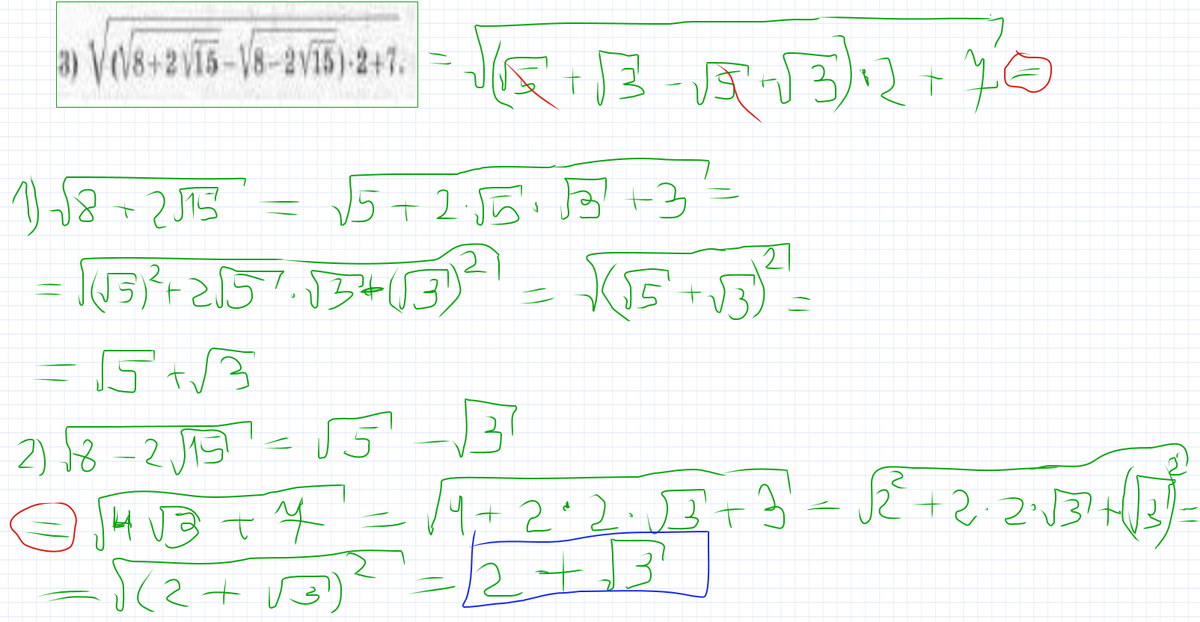 3) √((√(8+2√15)−√(8−2√15))·2+7. = √((√5 + √3 − √5 + √3)·2 + 7) =
1) √(8 + 2√15) = √(5 + 2·√5·√3 + 3) =
= √((√5)² + 2√5·√3 + (√3)²) = √((√5 + √3)²) =
= √5 + √3
2) √(8 − 2√15) = √5 − √3
= √(4√3 + 7) = √(4 + 2·2·√3 + 3) = √(2² + 2·2·√3 + (√3)²) =
= √((2 + √3)²) = 2 + √3